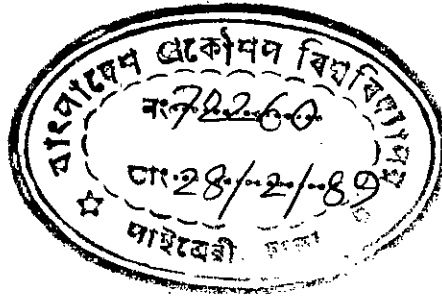 বাংলাদেশ প্রকৌশল বিশ্ববিদ্যালয়
নং 72260
তাং 28/2/89
লাইব্রেরী ঢাকা